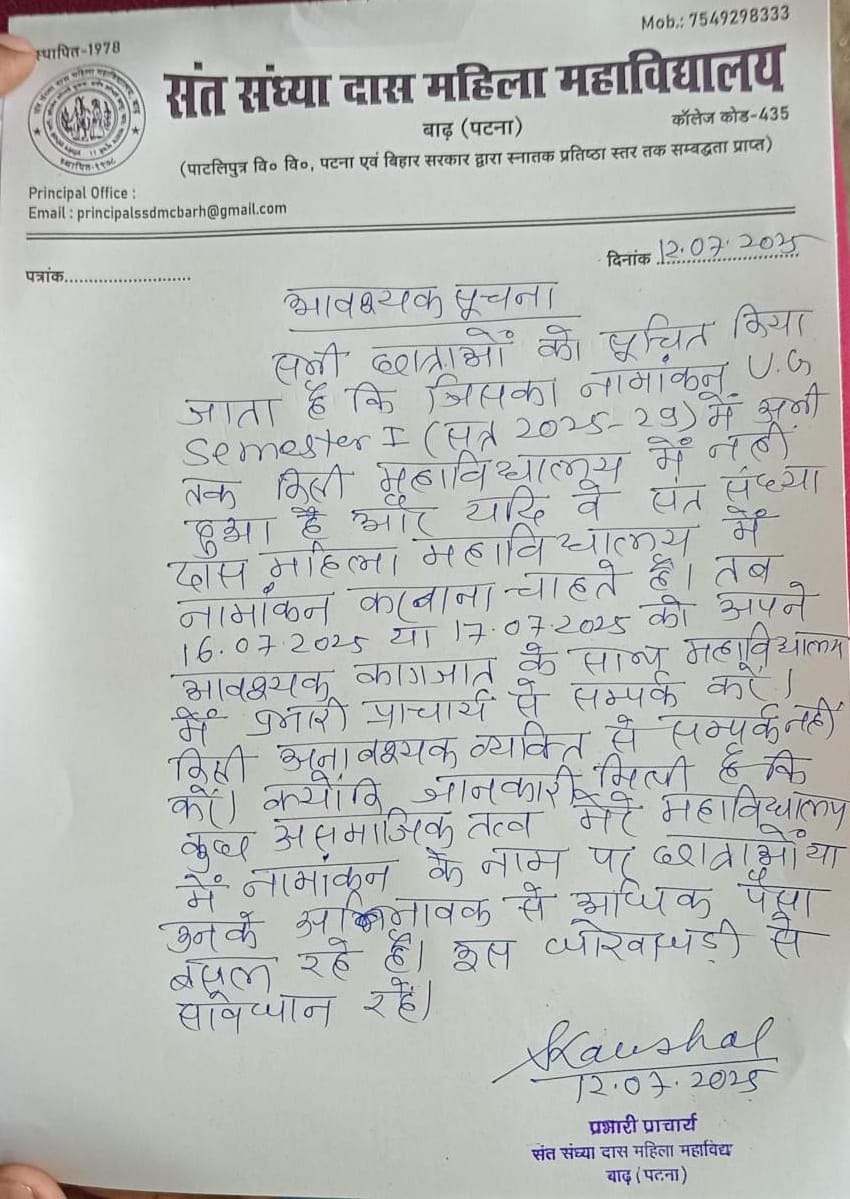 Mob.: 7549298333
स्थापित-1978
संत संध्या दास महिला महाविद्यालय
बाढ़ (पटना)
कॉलेज कोड-435
(पाटलिपुत्र वि० वि०, पटना एवं बिहार सरकार द्वारा स्नातक प्रतिष्ठा स्तर तक सम्बद्धता प्राप्त)
Principal Office :
Email : principalssdmcbarh@gmail.com
पत्रांक............................
दिनांक 12.07.2025
आवश्यक सूचना
सभी छात्राओं को सूचित किया
जाता है कि जिसका नामांकन U.G
Semester I (सत्र 2025-29) में अभी
तक किसी महाविद्यालय में नहीं
हुआ है और यदि वे संत संध्या
दास महिला महाविद्यालय में
नामांकन करवाना चाहते हैं। तब
16.07.2025 या 17.07.2025 को अपने
आवश्यक कागजात के साथ महाविद्यालय
में प्रभारी प्राचार्य से सम्पर्क करें।
किसी अनावश्यक व्यक्ति से सम्पर्क नहीं
करें। क्योंकि जानकारी मिली है कि
कुछ असमाजिक तत्व मेरे महाविद्यालय
में नामांकन के नाम पर छात्राओं या
उनके अभिभावक से अधिक पैसा
बसूल रहे हैं। इस धोखाधड़ी से
सावधान रहें।
Kaushal
12.07.2025
प्रभारी प्राचार्य
संत संध्या दास महिला महाविद्य
बाढ़ (पटना)